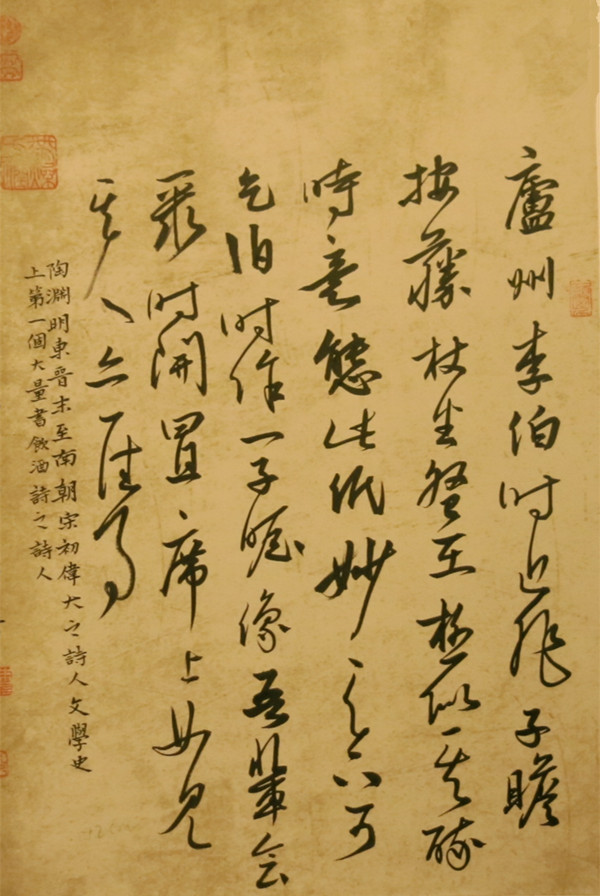 廬州李伯时近作子瞻
按藤杖坐盤石極似其醉
時意態此紙妙天下可
乞伯时作一子瞻像吾輩会
聚时開置席上如見
其人亦一佳事
陶淵明東晉末至南朝宋初偉大之詩人文學史
上第一個大量書飲酒詩之詩人